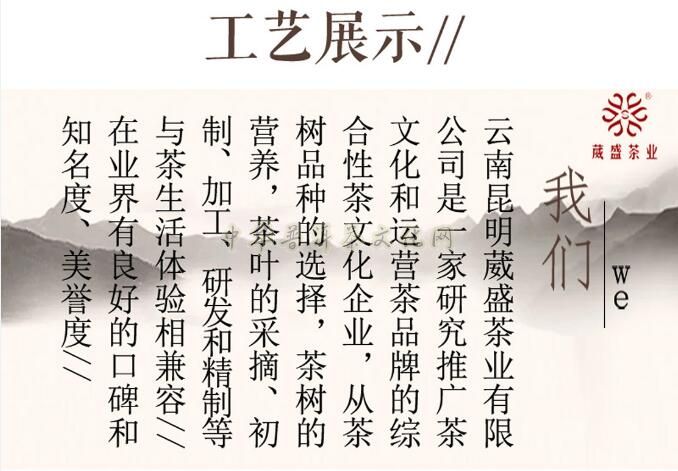 工艺展示//
葳盛茶业
®
我们
we
云南昆明葳盛茶业有限
公司是一家研究推广茶
文化和运营茶品牌的综
合性茶文化企业，从茶
树品种的选择，茶树的
营养，茶叶的采摘、初
制、加工、研发和精制等
与茶生活体验相兼容//
在业界有良好的口碑和
知名度、美誉度//